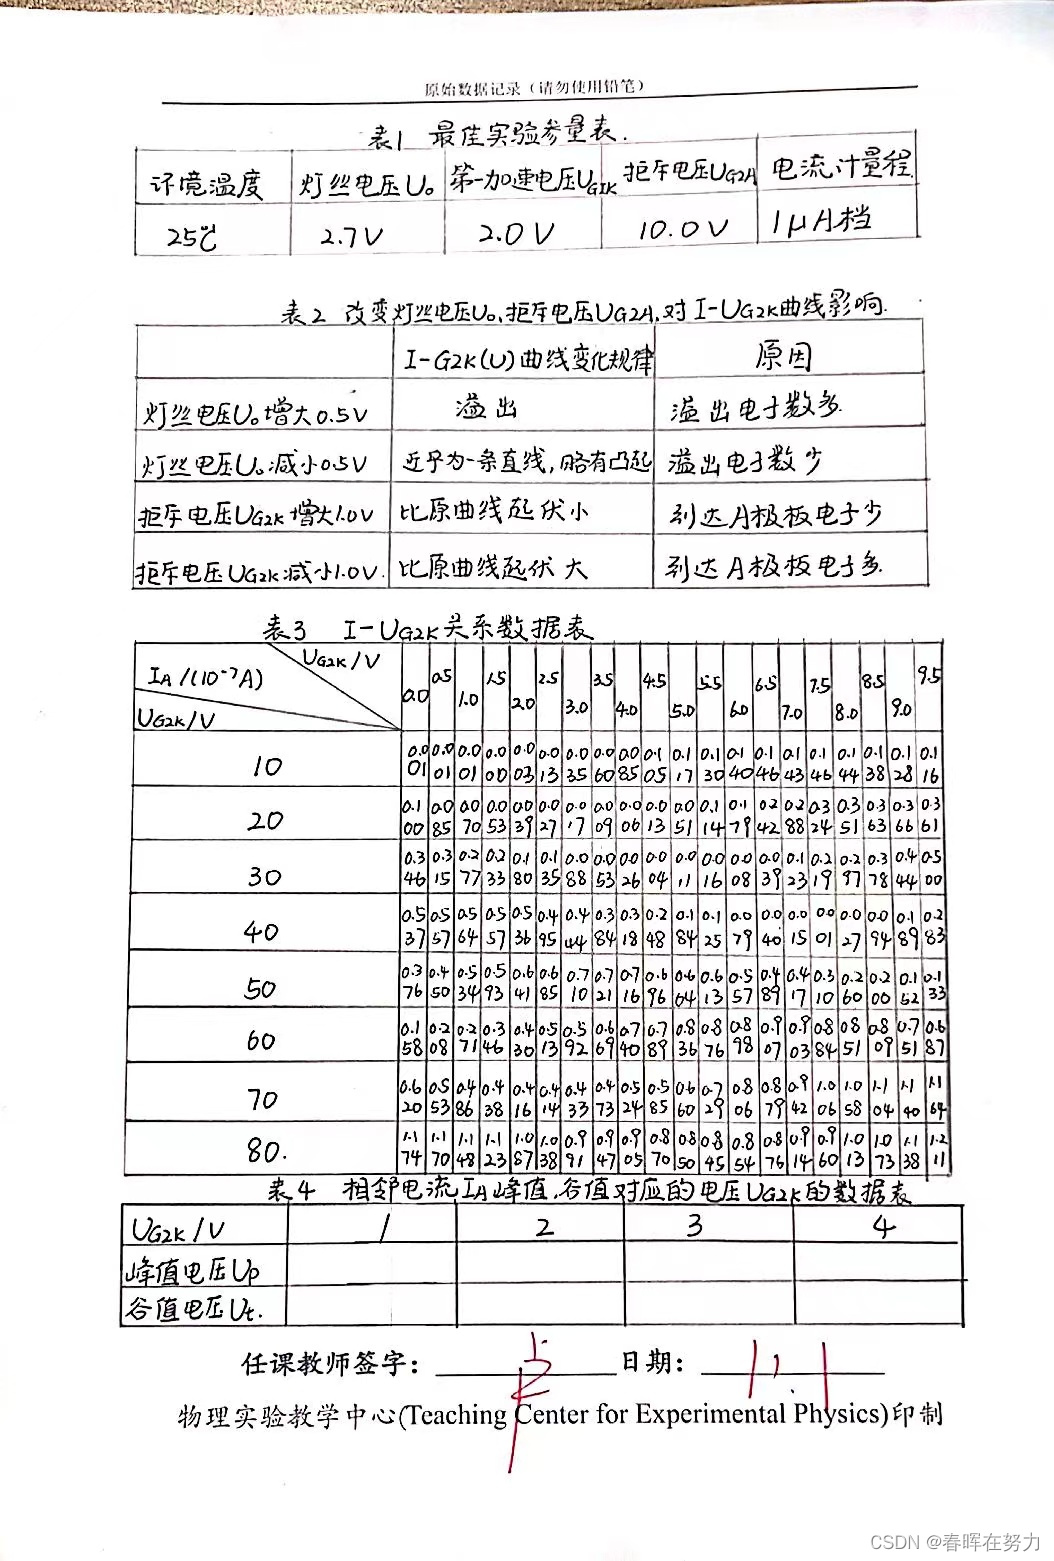 原始数据记录（请勿使用铅笔）
表1 最佳实验参量表.
环境温度 灯丝电压U₀ 第一加速电压UG1K 拒斥电压UG2A 电流计量程
25℃ 2.7V 2.0V 10.0V 1μA档
表2 改变灯丝电压U₀,拒斥电压UG2A,对I-UG2K曲线影响.
I-G2K(U)曲线变化规律 原因
灯丝电压U₀增大0.5V 溢出 溢出电子数多.
灯丝电压U₀减小0.5V 近乎为一条直线,略有凸起 溢出电子数少
拒斥电压UG2K增大1.0V 比原曲线起伏小 到达A极板电子少
拒斥电压UG2K减小1.0V. 比原曲线起伏大 到达A极板电子多.
表3 I-UG2K关系数据表
IA/(10⁻⁷A) UG2K/V UG2K/V 0.0 0.5 1.0 1.5 2.0 2.5 3.0 3.5 4.0 4.5 5.0 5.5 6.0 6.5 7.0 7.5 8.0 8.5 9.0 9.5
10 0.001 0.001 0.001 0.000 0.003 0.013 0.035 0.060 0.085 0.105 0.117 0.130 0.140 0.146 0.143 0.146 0.144 0.138 0.128 0.116
20 0.100 0.085 0.070 0.053 0.039 0.027 0.017 0.009 0.006 0.013 0.051 0.114 0.179 0.242 0.288 0.324 0.351 0.363 0.366 0.361
30 0.346 0.315 0.277 0.233 0.180 0.135 0.088 0.053 0.026 0.004 0.011 0.016 0.008 0.039 0.123 0.219 0.297 0.378 0.444 0.500
40 0.537 0.557 0.564 0.557 0.536 0.495 0.444 0.384 0.318 0.248 0.184 0.125 0.079 0.040 0.015 0.001 0.027 0.094 0.189 0.283
50 0.376 0.450 0.534 0.593 0.641 0.685 0.710 0.721 0.716 0.696 0.604 0.613 0.557 0.489 0.417 0.310 0.260 0.200 0.152 0.133
60 0.158 0.208 0.271 0.346 0.430 0.513 0.592 0.669 0.740 0.789 0.836 0.876 0.898 0.907 0.903 0.884 0.851 0.809 0.751 0.687
70 0.620 0.553 0.486 0.438 0.416 0.414 0.433 0.473 0.524 0.585 0.660 0.729 0.806 0.879 0.942 1.006 1.058 1.104 1.140 1.164
80. 1.174 1.170 1.148 1.123 1.087 1.038 0.991 0.947 0.905 0.870 0.850 0.845 0.854 0.876 0.914 0.960 1.013 1.073 1.138 1.211
表4 相邻电流IA峰值,谷值对应的电压UG2K的数据表
UG2K/V 1 2 3 4
峰值电压Up
谷值电压Ut.
任课教师签字: 日期: 11.1
物理实验教学中心(Teaching Center for Experimental Physics)印制
CSDN @春晖在努力